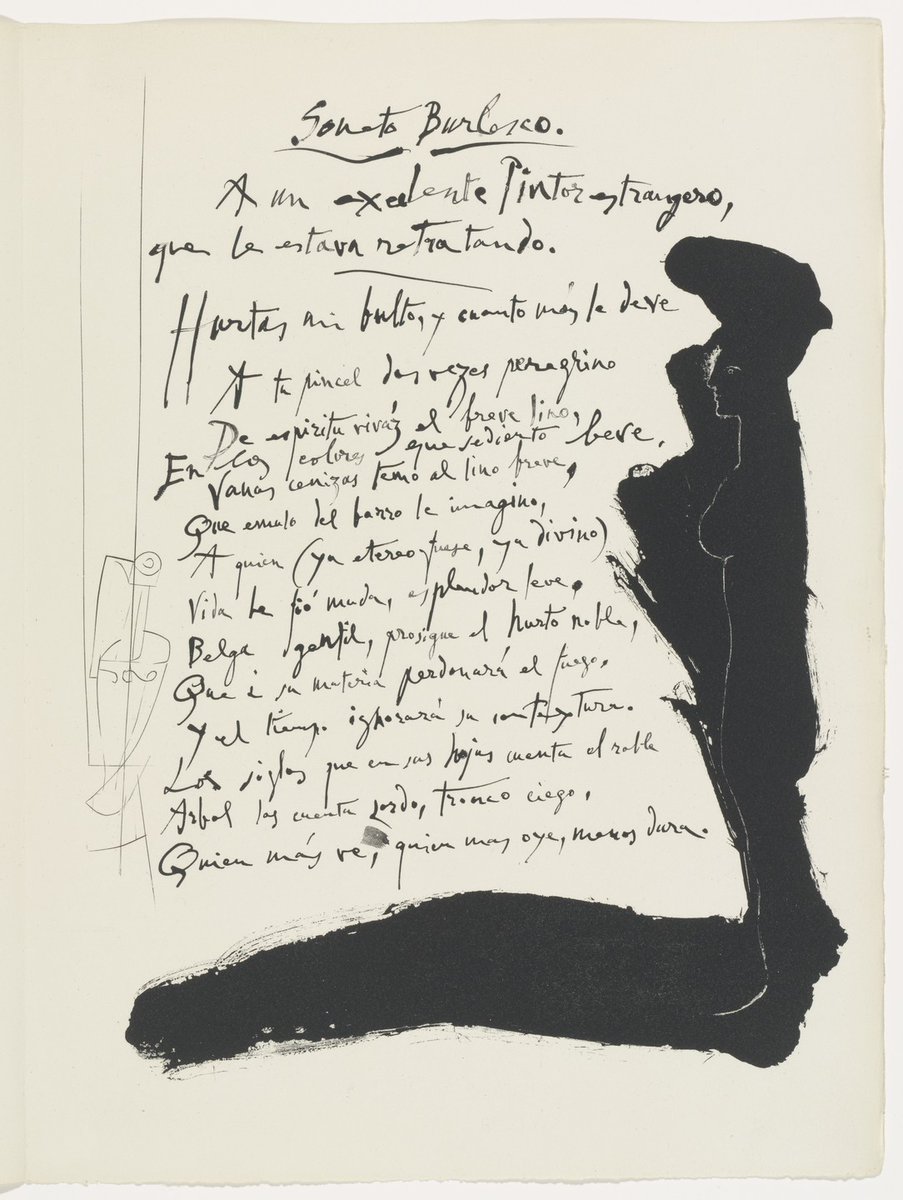 Soneto Burlesco.
A un exelente Pintor estrangero,
que le estava retratando.
Hurtas mi bulto, y cuanto más le deve
A tu pincel dos vezes peregrino
De espiritu viváz el breve lino,
En los colores que sediento beve.
Vanas cenizas temo al lino breve,
Que emulo del barro le imagino,
A quien (ya etereo fuese, ya divino)
Vida le fió muda, esplendor leve,
Belga gentil, prosigue el hurto noble,
Que á su materia perdonará el fuego,
Y el tiempo ignorará su contextura.
Los siglos que en sus hojas cuenta el roble
Arbol los cuenta sordo, tronco ciego,
Quien más ve, quien mas oye, menos dura.